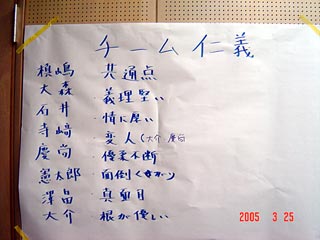 チーム仁義
槙嶋 共通点
大森 ・義理堅い
石井 ・情に厚い
寺崎 ・変人(大介・慶尚
慶尚 ・優柔不断
憲太郎 ・面倒くさがり
澤畠 ・真面目
大介 ・根が優しい
2005 3 25